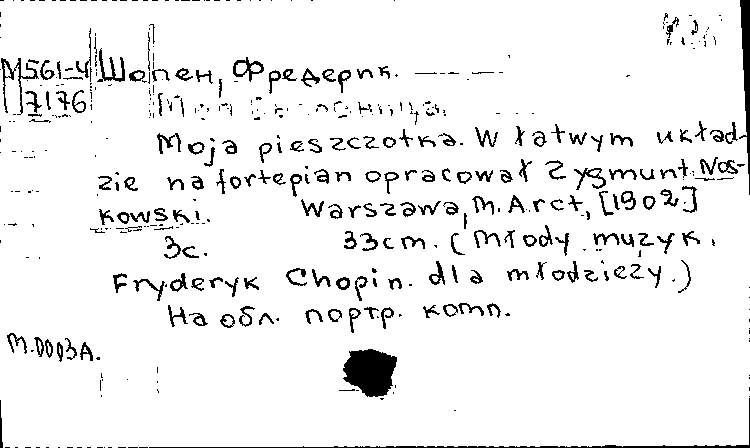 М561-4 Шопен, Фредерик.
7176
Moja pieszczotka. W łatwym układ-
zie na fortepian opracował Zygmunt Nos-
kowski. Warszawa, M. Arct, [1902]
3с. 33cm. (Młody muzyk.
Fryderyk Chopin. dla młodzieży.)
На обл. портр. комп.
М.0003А.